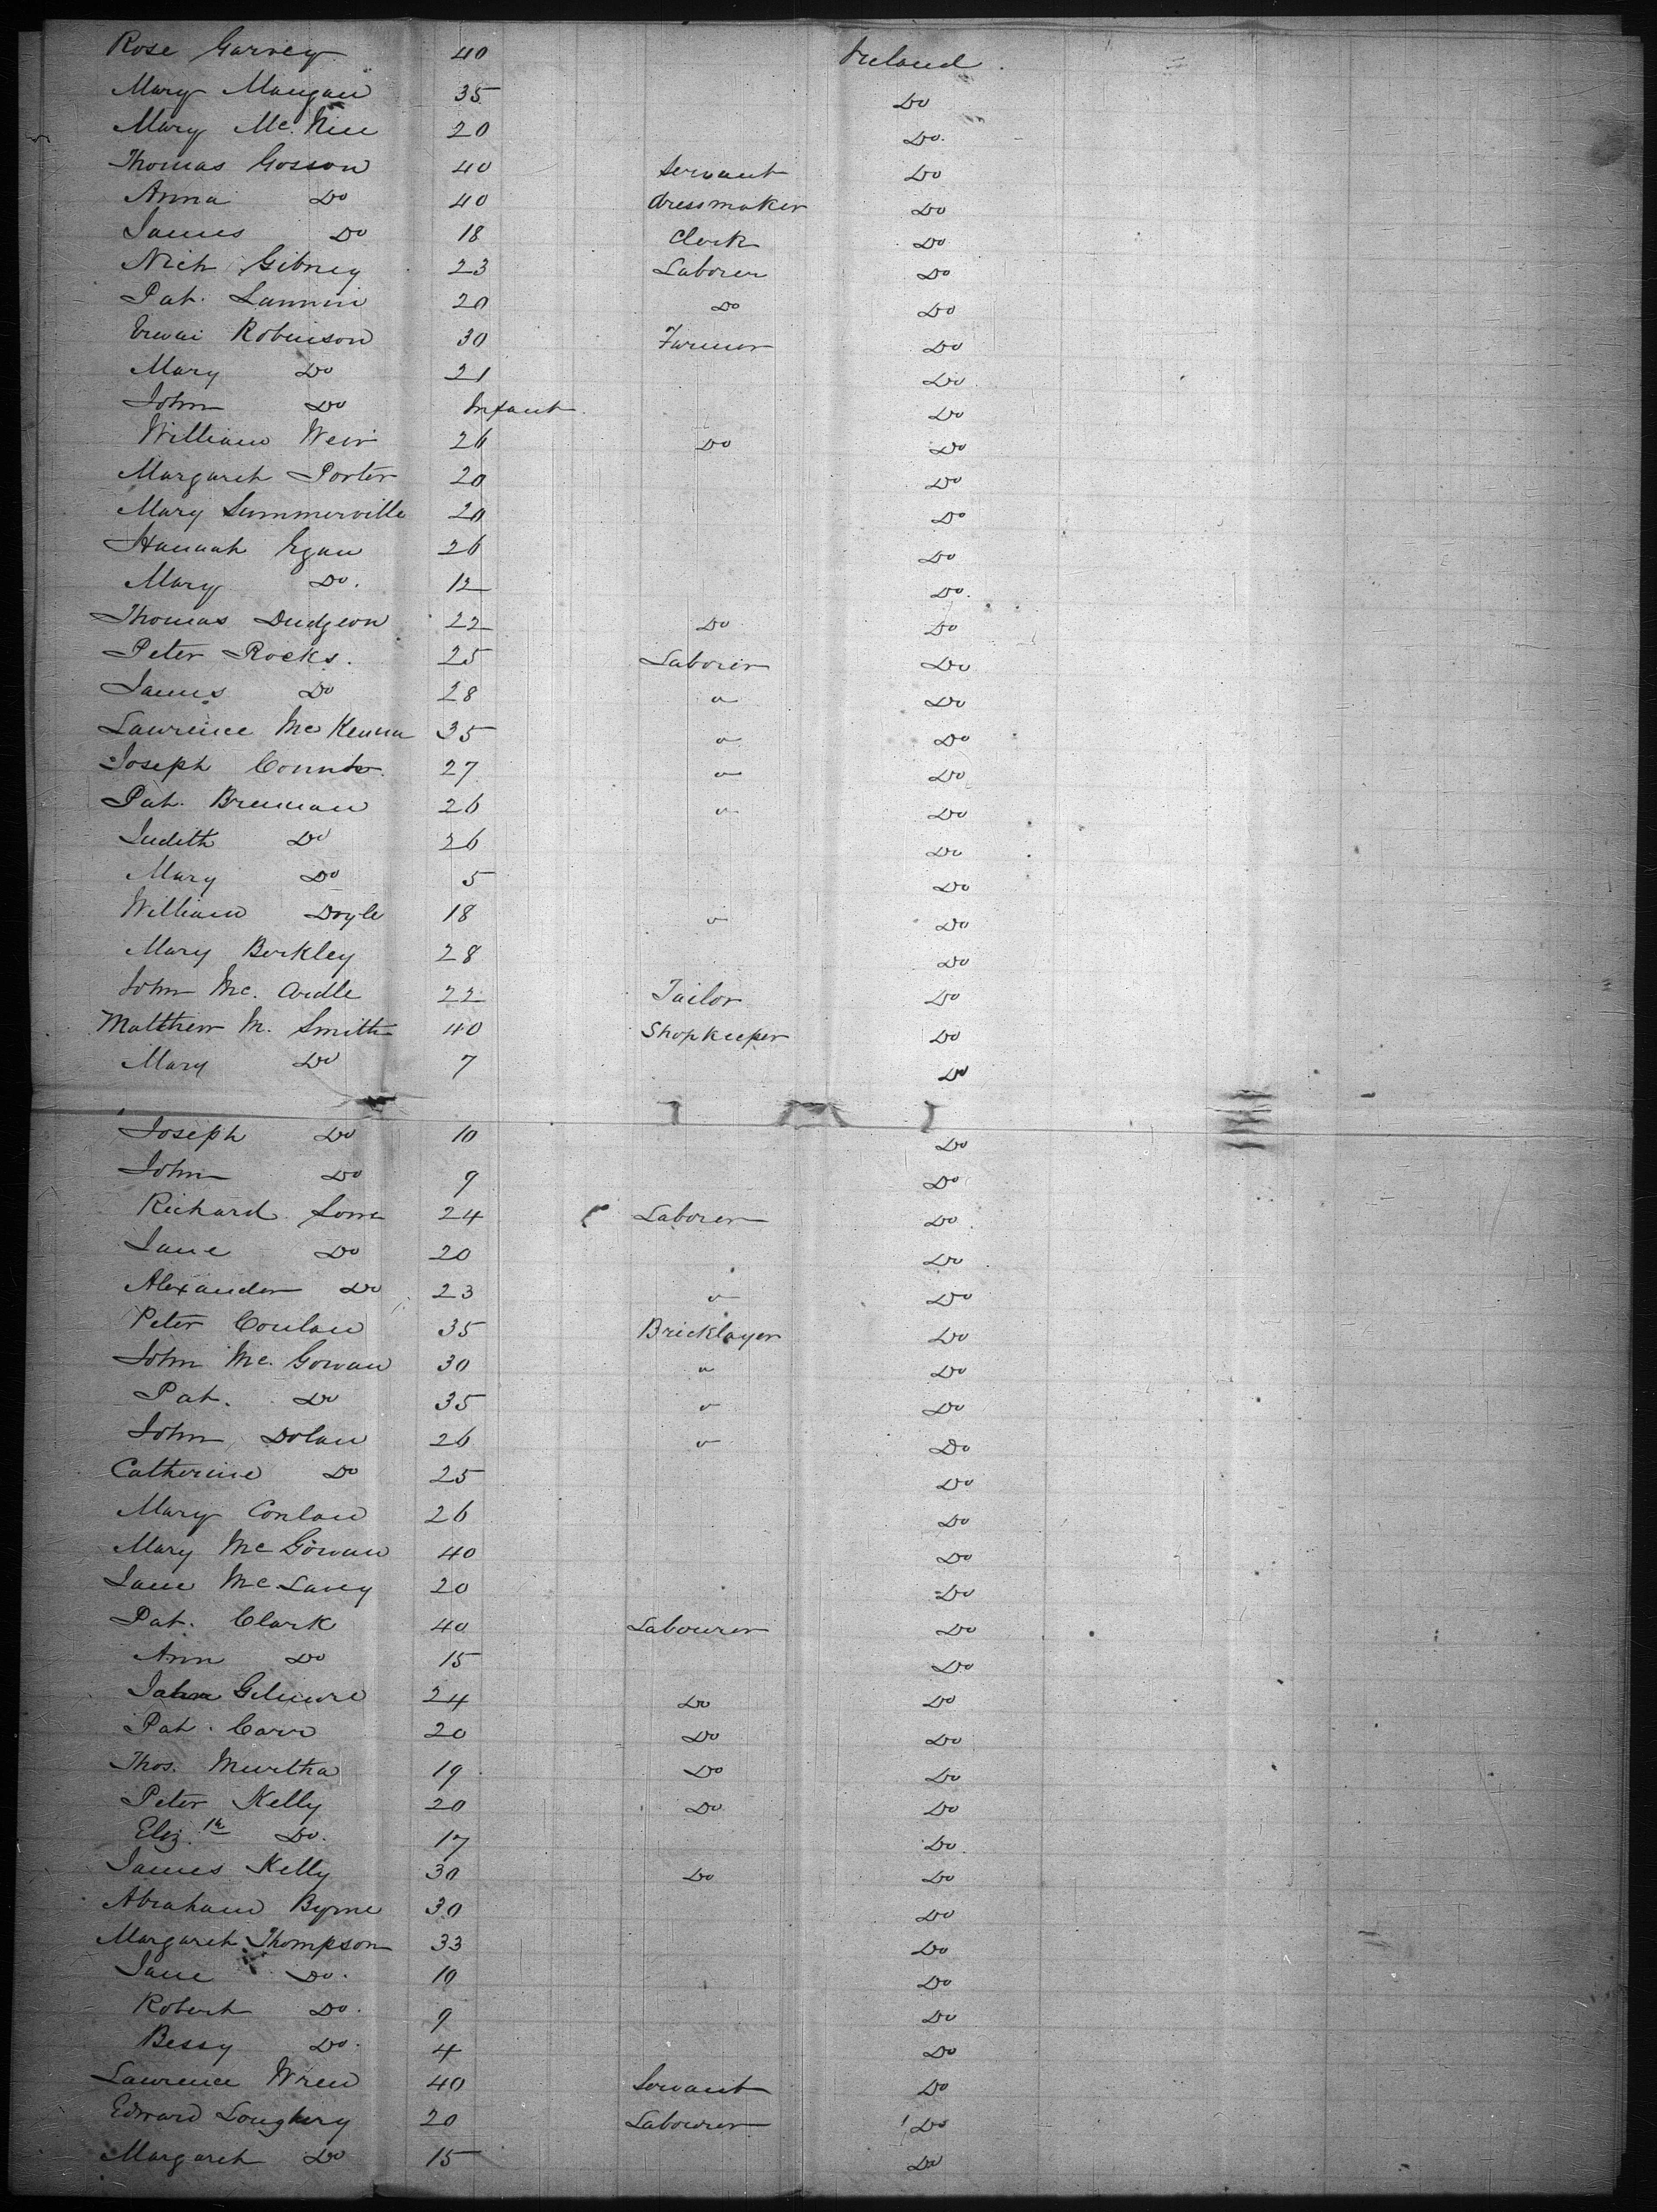 Rose Garvey 40 Ireland.
Mary Mangan 35 Do
Mary Mc. 20 Do.
Thomas Gosson 40 Servant Do
Anna Do 40 dressmaker Do
James Do 18 Clerk Do
Nich Gibney 23 Laborer Do
Pat. Lannin 20 Do Do
Robinson 30 Farmer Do
Mary Do 21 Do
John Do Infant Do
William Weir 26 Do Do
Margaret Porter 20 Do
Mary Summerville 20 Do
Hannah Egan 26 Do
Mary Do. 12 Do.
Thomas Dudgeon 22 Do Do
Peter Rocks. 25 Laborer Do
James Do 28 " Do
Lawrence McKenna 35 " Do
Joseph 27 " Do
Pat. Brennan 26 " Do
Judith Do 26 Do
Mary Do 5 Do
William Doyle 18 " Do
Mary Berkley 28 Do
John Mc. Ardle 22 Tailor Do
Matthew M. Smith 40 Shopkeeper Do
Mary Do 7 Do
Joseph Do 10 Do
John Do 9 Do
Richard 24 Laborer Do
Jane Do 20 Do
Alexander Do 23 " Do
Peter Conlan 35 Bricklayer Do
John Mc. Gowan 30 " Do
Pat. Do 35 " Do
John Dolan 26 " Do
Catherine Do 25 Do
Mary Conlan 26 Do
Mary McGowan 40 Do
Jane Mc Lavey 20 Do
Pat. Clark 40 Labourer Do
Ann Do 15 Do
John Gilmore 24 Do Do
Pat. Carr 20 Do Do
Thos. Murtha 19 Do Do
Peter Kelly 20 Do Do
Eliz.th Do. 17 Do
James Kelly 30 Do Do
Abraham Byrne 30 Do
Margaret Thompson 33 Do
Jane Do. 10 Do
Robert Do. 9 Do
Bessy Do. 4 Do
Lawrence Wren 40 Servant Do
Edward Loughery 20 Labourer Do
Margaret Do 15 Do